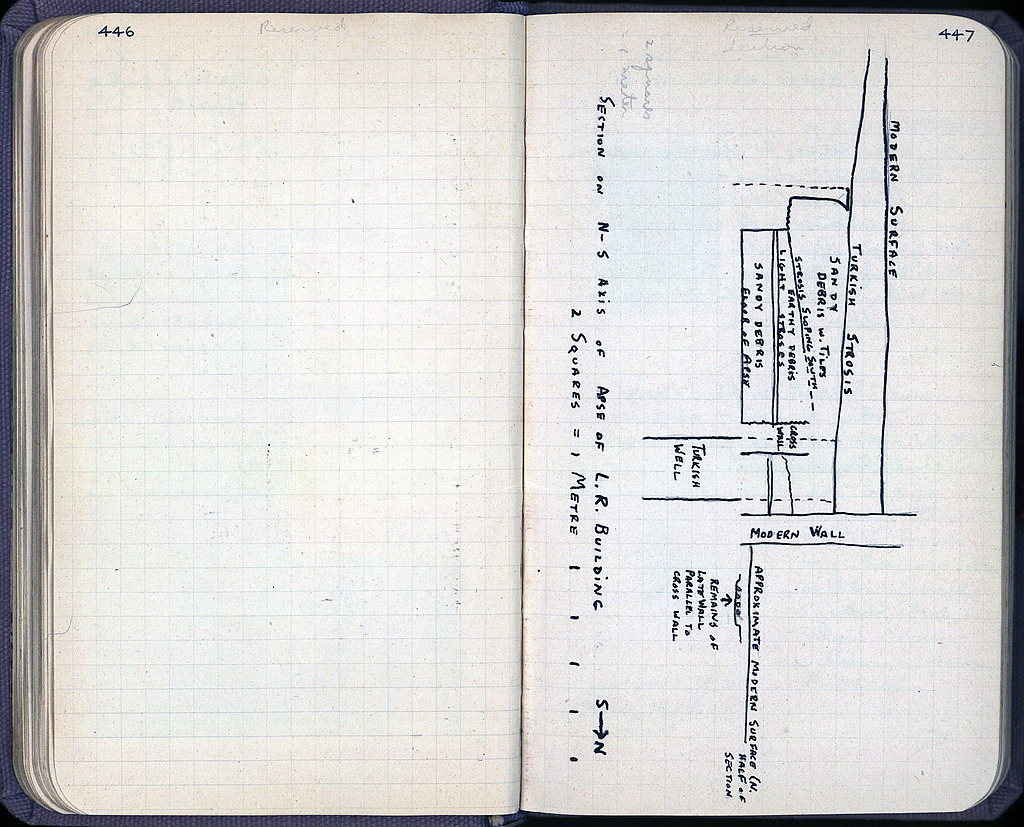 446
Reserved
Reserved
section
447
2 squares
1 meter
MODERN SURFACE
TURKISH STROSIS
SANDY
DEBRIS W. TILES
STROSIS SLOPING SOUTH
EARTHY DEBRIS
LIGHT STROSES
SANDY DEBRIS
FLOOR OF APSE
CROSS
WALL
TURKISH
WELL
MODERN WALL
APPROXIMATE MODERN SURFACE (N.
HALF OF
SECTION
REMAINS OF
LATE WALL
PARALLEL TO
CROSS WALL
SECTION ON N-S AXIS OF APSE OF L.R. BUILDING S→N
2 SQUARES = 1 METRE